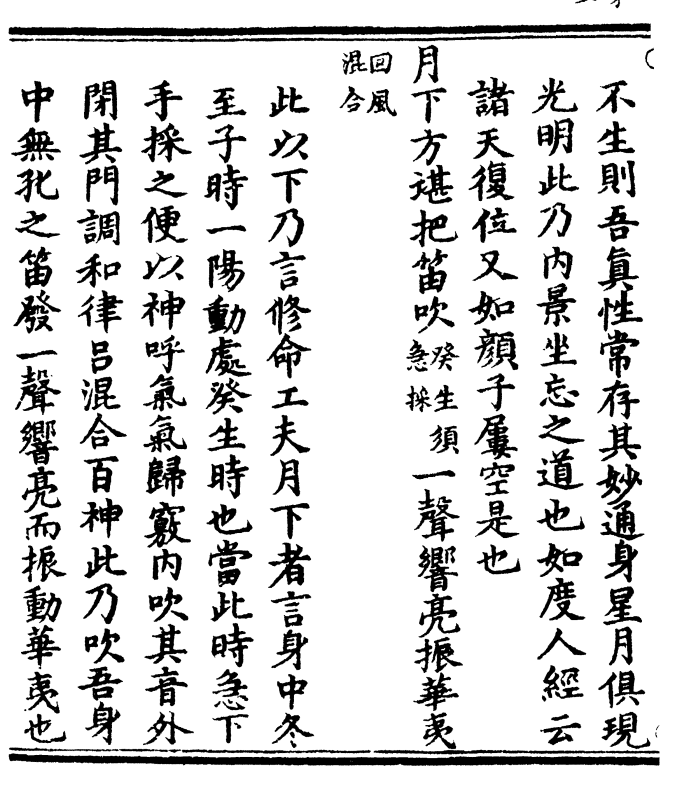 不生則吾眞性常存其妙通身星月俱現
光明此乃内景坐忘之道也如度人經云
諸天復位又如顔子屢空是也
月下方堪把笛吹癸生須急採一聲響亮振華夷
回風混合
此以下乃言修命工夫月下者言身中冬
至子時一陽動處癸生時也當此時急下
手採之便以神呼氣氣歸竅内吹其音外
閉其門調和律呂混合百神此乃吹吾身
中無孔之笛發一聲響亮而振動華夷也